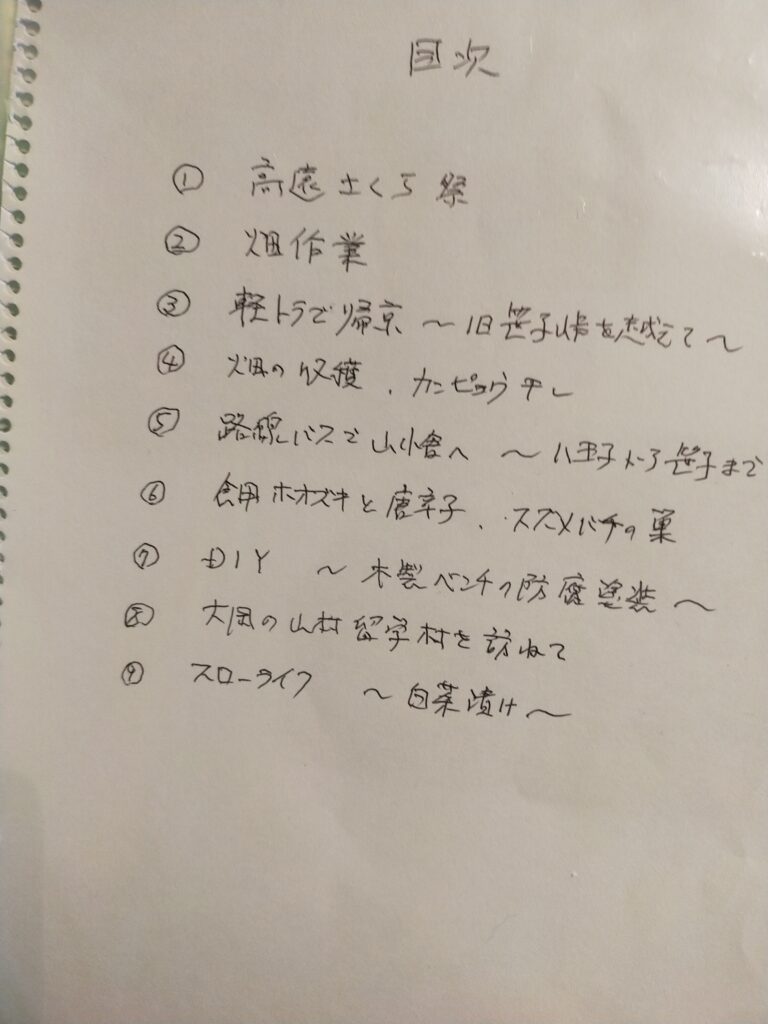 目次
① 高遠さくら祭
② 畑作業
③ 軽トラで帰京 〜旧笹子峠を越えて〜
④ 畑の収穫、カンピョウ干し
⑤ 路線バスで山小舎へ 〜八王子から笹子まで
⑥ 食用ホオズキと唐辛子、スズメバチの巣
⑦ DIY 〜木製ベンチの防腐塗装〜
⑧ 大岡の山村留学村を訪ねて
⑨ スローライフ 〜白菜漬け〜